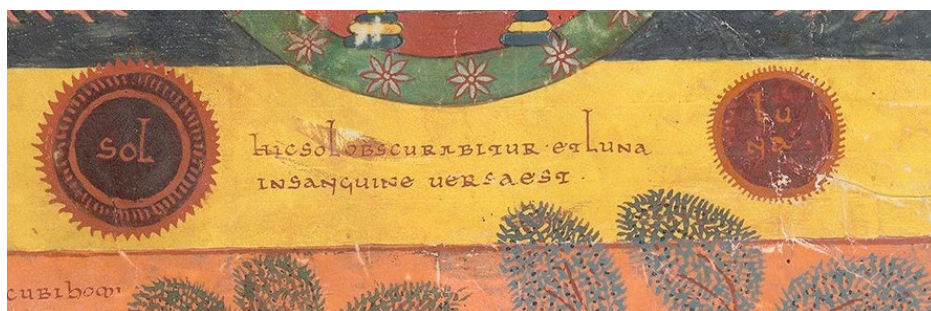 SOL
hIC SOL OBSCURABITUR · ET LUNA
IN SANGUINE UERSA EST ·
LU
NA ·
CUBI hOMI